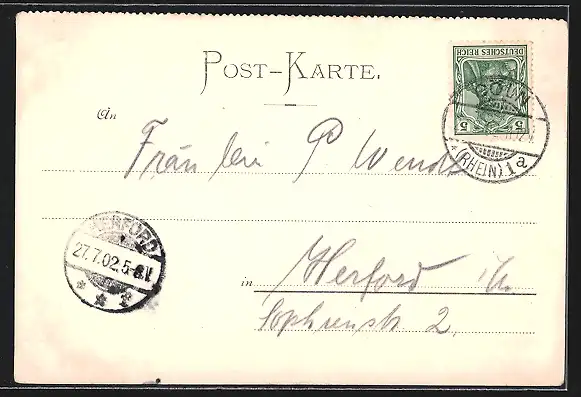 POST-KARTE.
An
Fräulein P Wendt
in Herford i/W.
Sophienstr 2.
DEUTSCHES REICH
5 5
CÖLN
* (RHEIN) 1a
HERFORD
27.7.02.5-6.N.